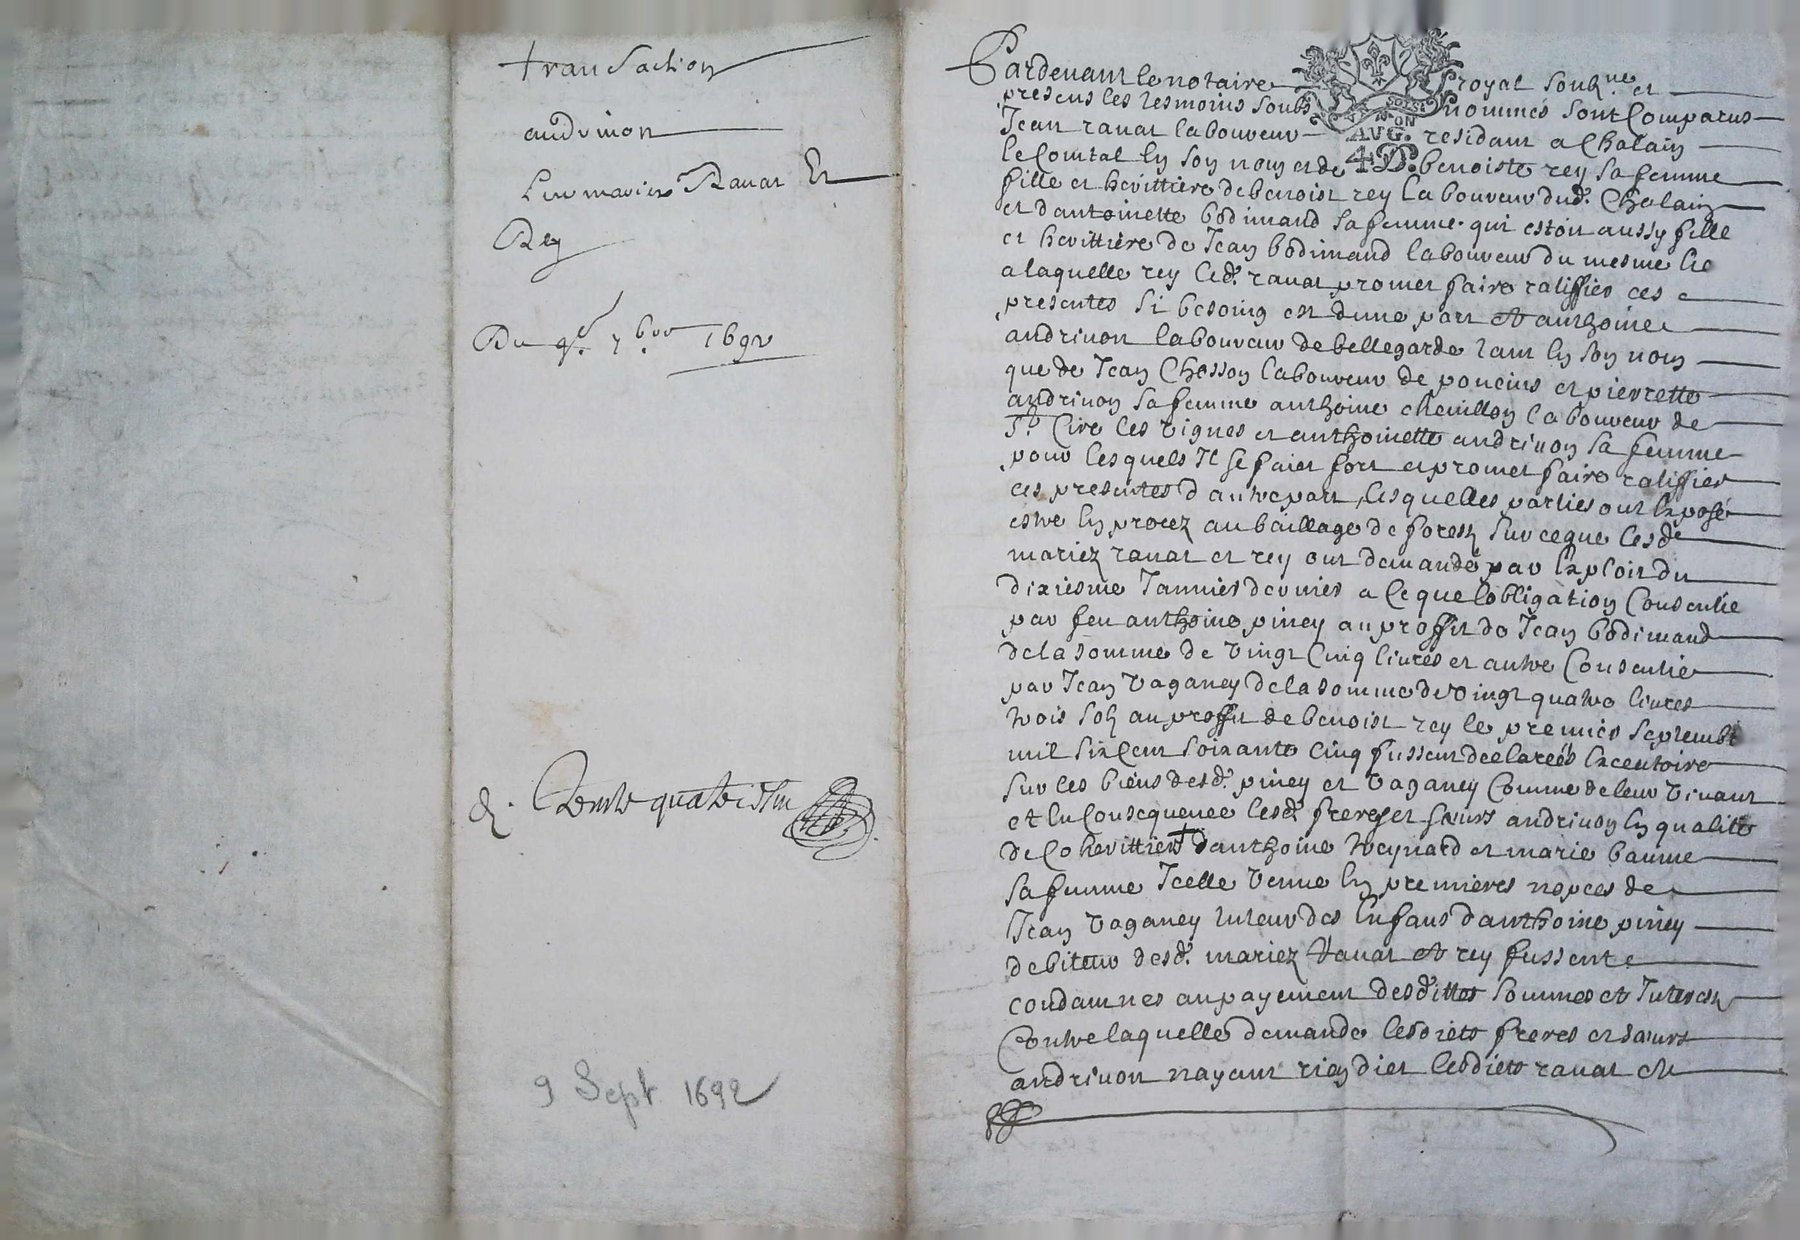 transaction
andrivon
Les mariez Ravat Et
Rey
Du 9e 7bre 1692
9 Sept 1692
Pardevant le notaire royal soubz.ne et
presens les tesmoins soubz nommés sont Comparus
AVG.
4D.
Jean ravat laboureur residant a Chalain
le Comtal En son nom et de benoiste rey sa femme
fille et herittiere de benoist rey laboureur dud. Chalain
et dantoinette bodimand sa femme qui estoit aussy fille
et herittiere de Jean bodimand laboureur du mesme lie
a laquelle rey led. ravat promet faire ratiffier ces
presentes si besoing est dune part et anthoine
andrivon laboureur de bellegarde tant En son nom
que de Jean Chosson laboureur de poncins et pierrette
andrivon sa femme anthoine chevillon laboureur de
St. Cire les vignes et anthoinette andrivon sa femme
pour lesquels Il se faict fort et promet faire ratiffier
ces presentes dautre part, lesquelles parties ont Exposé
estre En procez au baillage de forestz sur ce que lesd.
mariez ravat et rey ont demandé par Exploit du
dixiesme Janvier dernier a ce que lobligation Consentie
par feu anthoine piney au proffit de Jean bodimand
de la somme de vingt Cinq livres et autre Consentie
par Jean vaganey de la somme de vingt quatre livres
trois solz au proffit de benoist rey le premier septemb
mil six Cent soixante Cinq fussent declarées Executoire
sur les biens desd. piney et vaganey Comme de leur vivant
et En Consequence lesd. freres et sœurs andrivon En qualité
de Coherittiers danthoine treynard et marie baume
sa femme Icelle venue En premieres nopces de
Jean vaganey tuteur des Enfans danthoine piney
debiteur desd. mariez Ravat et rey fussent
condamnes au payement desdittes sommes et Interestz
Contre laquelle demande lesdicts freres et sœurs
andrivon nayant rien dict lesdicts ravat et